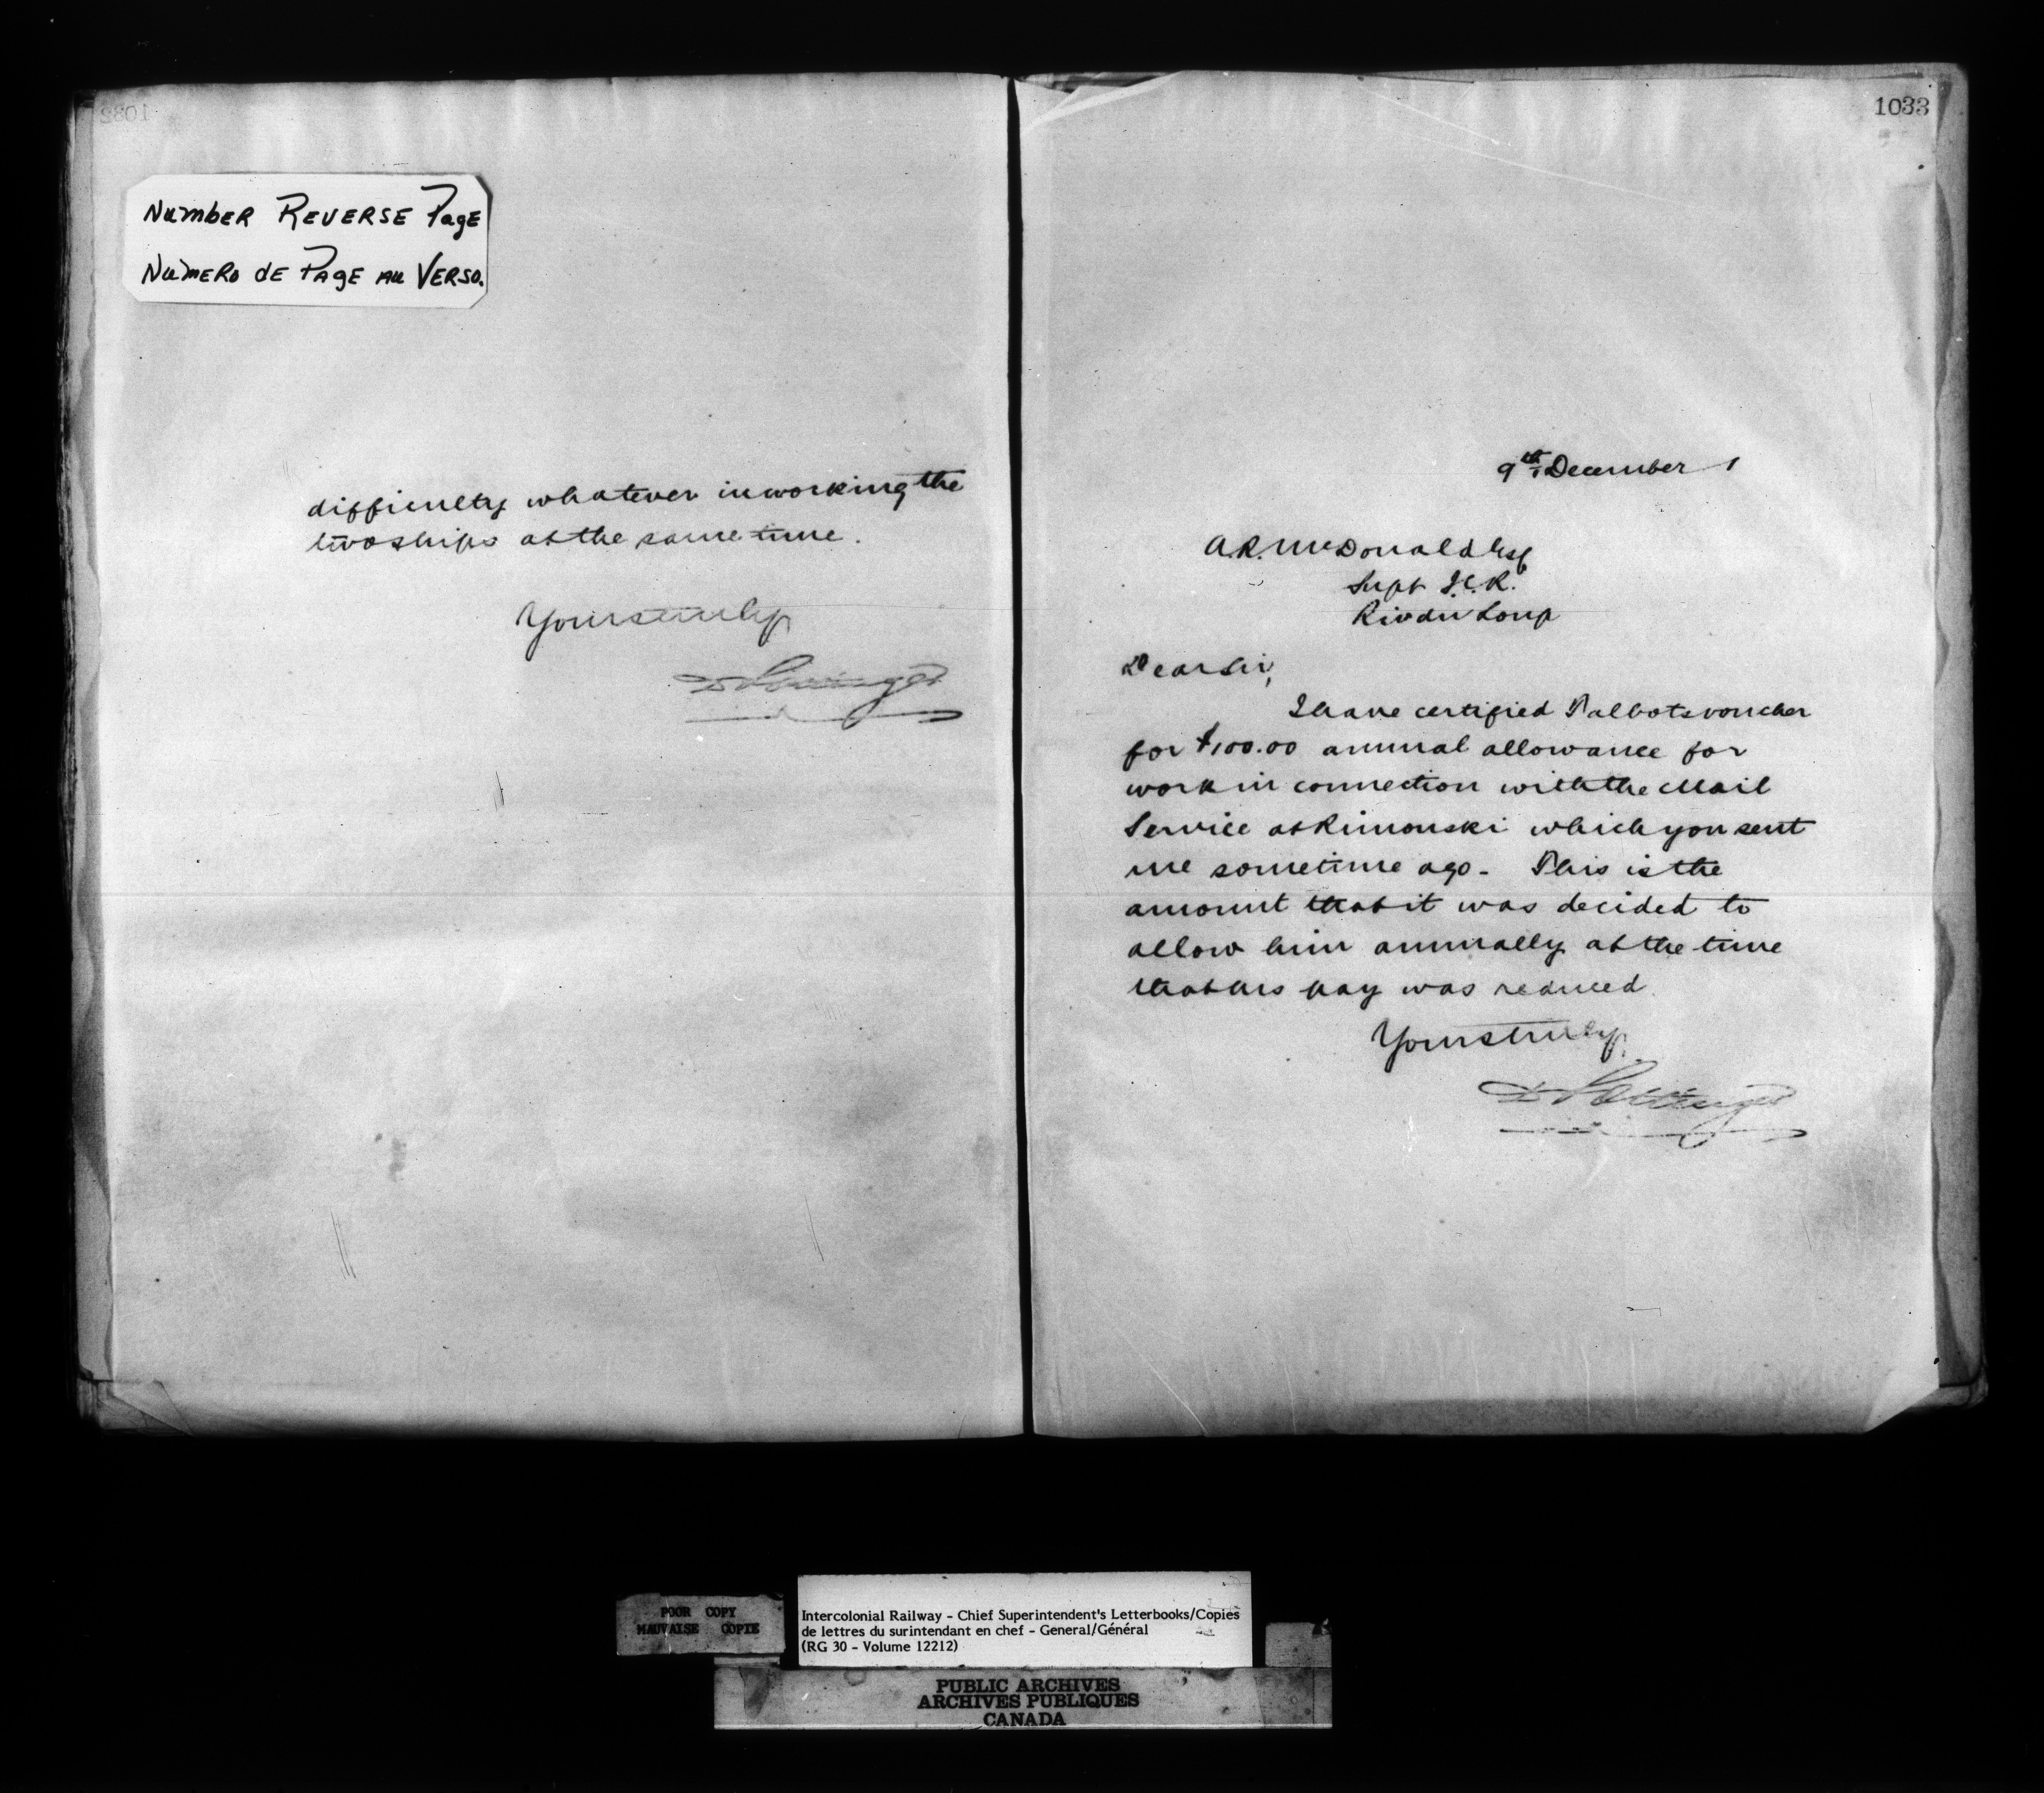 1032
NUMBER REVERSE PAGE
NUMERO DE PAGE AU VERSO.
difficulty whatever in working the
two ships at the same time.
Yours truly
D Pottinger
1033
9th December 1
A. R. McDonald Esq
Supt I.C.R.
Riv du Loup
Dear Sir,
I have certified Talbots voucher
for $100.00 annual allowance for
work in connection with the Mail
Service at Rimouski which you sent
me sometime ago - This is the
amount that it was decided to
allow him annually at the time
that his pay was reduced.
Yours truly
D Pottinger
POOR COPY
MAUVAISE COPIE
Intercolonial Railway - Chief Superintendent's Letterbooks/Copies
de lettres du surintendant en chef - General/Général
(RG 30 - Volume 12212)
PUBLIC ARCHIVES
ARCHIVES PUBLIQUES
CANADA